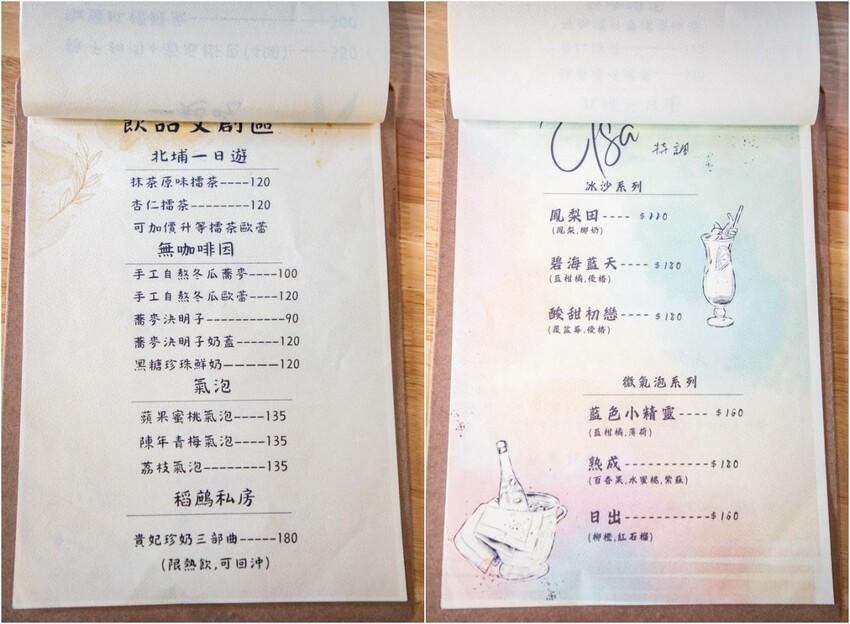 飲品文創區
北埔一日遊
抹茶原味擂茶----120
杏仁擂茶--------120
可加價升等擂茶歐蕾
無咖啡因
手工自熬冬瓜蕎麥----100
手工自熬冬瓜歐蕾----120
蕎麥決明子-----------90
蕎麥決明子奶蓋------120
黑糖珍珠鮮奶--------120
氣泡
蘋果蜜桃氣泡----135
陳年青梅氣泡----135
荔枝氣泡--------135
稻鷓私房
貴妃珍奶三部曲-----180
(限熱飲,可回沖)
Elsa 特調
冰沙系列
鳳梨田----
(鳳梨,椰奶)
碧海藍天---- $180
(藍柑橘,優格)
酸甜初戀---- $180
(覆盆莓,優格)
微氣泡系列
藍色小精靈---- $160
(藍柑橘,薄荷)
熟成------------$180
(百香果,水蜜桃,紫蘇)
日出------------$160
(柳橙,紅石榴)